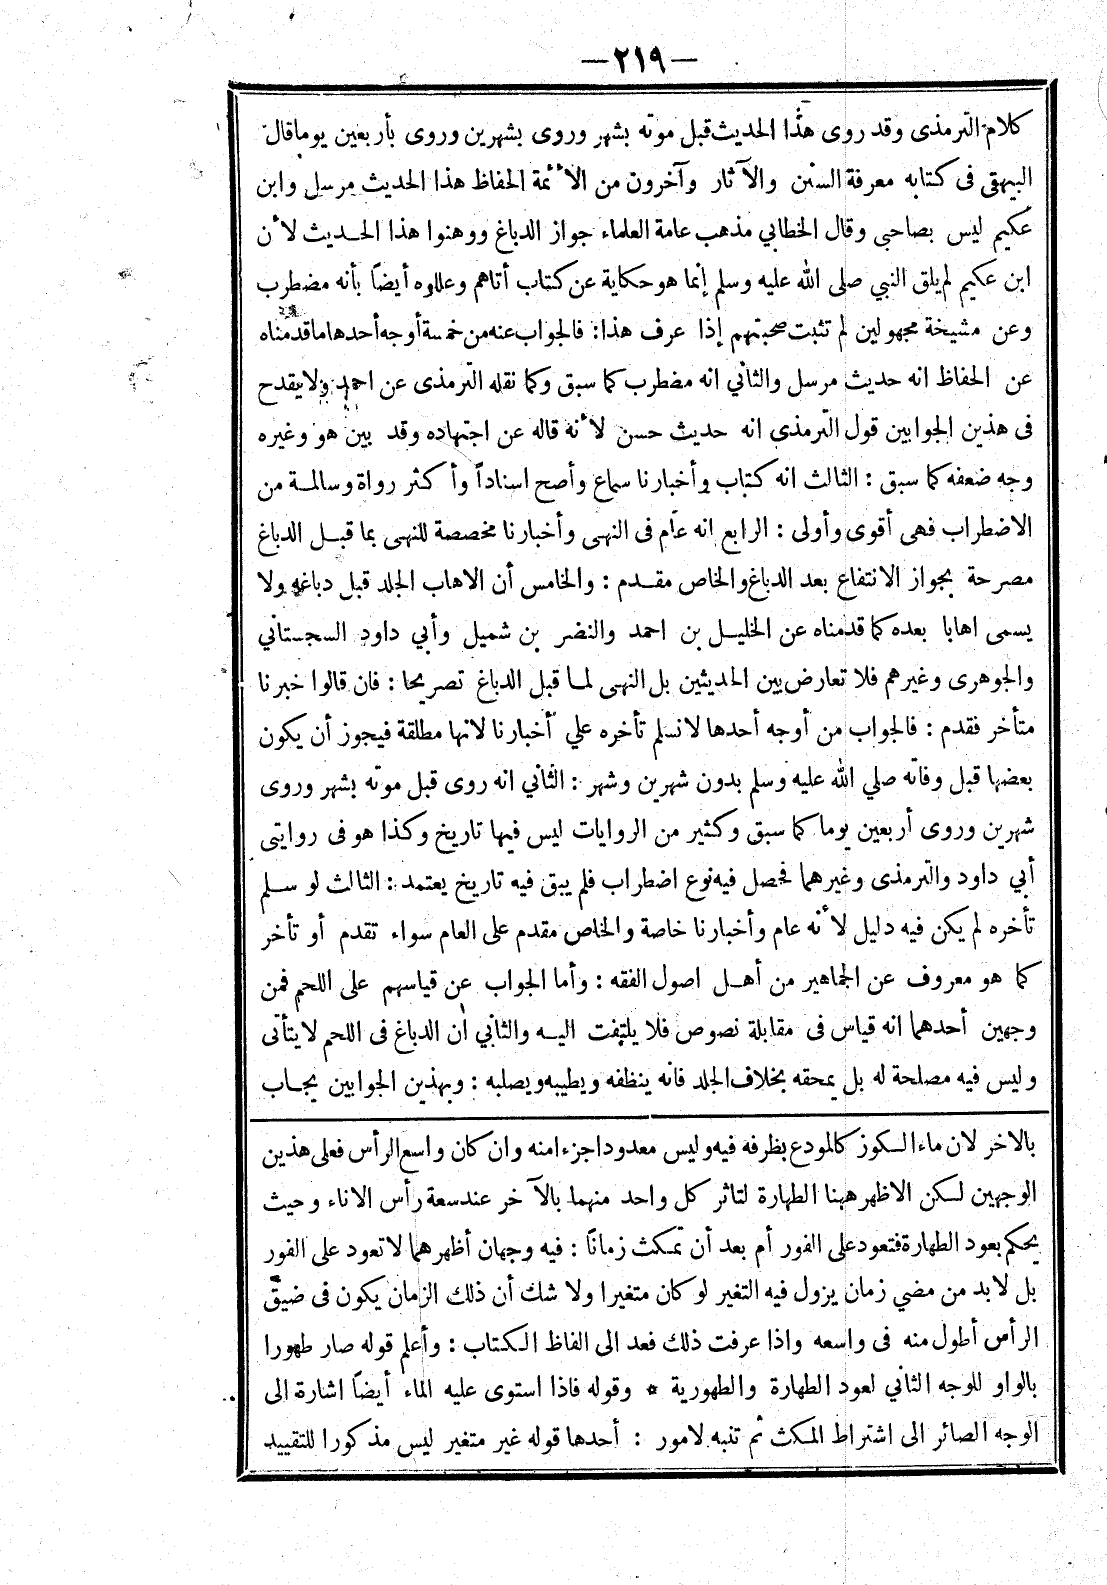 — ٢١٩ —
كلام الترمذى وقد روى هذا الحديث قبل موته بشهر وروى بشهرين وروى بأربعين يوما قال
البيهقى فى كتابه معرفة السنن والآثار وآخرون من الأئمة الحفاظ هذا الحديث مرسل وابن
عكيم ليس بصاحبى وقال الخطابي مذهب عامة العلماء جواز الدباغ ووهنوا هذا الحديث لأن
ابن عكيم لم يلق النبي صلى الله عليه وسلم إنما هو حكاية عن كتاب أتاهم وعللوه أيضاً بأنه مضطرب
وعن مشيخة مجهولين لم تثبت صحبتهم إذا عرف هذا : فالجواب عنه من خمسة أوجه أحدها ما قدمناه
عن الحفاظ انه حديث مرسل والثاني انه مضطرب كما سبق وكما نقله الترمذى عن احمد ولا يقدح
فى هذين الجوابين قول الترمذى انه حديث حسن لأنه قاله عن اجتهاده وقد بين هو وغيره
وجه ضعفه كما سبق : الثالث انه كتاب وأخبارنا سماع وأصح اسناداً وأكثر رواة وسالمة من
الاضطراب فهى أقوى وأولى : الرابع انه عام فى النهى وأخبارنا مخصصة للنهى بما قبل الدباغ
مصرحة بجواز الانتفاع بعد الدباغ والخاص مقدم : والخامس أن الاهاب الجلد قبل دباغه ولا
يسمى اهابا بعده كما قدمناه عن الخليل بن احمد والنضر بن شميل وأبي داود السجستاني
والجوهرى وغيرهم فلا تعارض بين الحديثين بل النهى لما قبل الدباغ تصريحا : فان قالوا خبرنا
متأخر فقدم : فالجواب من أوجه أحدها لا نسلم تأخره علي أخبارنا لانها مطلقة فيجوز أن يكون
بعضها قبل وفاته صلي الله عليه وسلم بدون شهرين وشهر : الثاني انه روى قبل موته بشهر وروى
شهرين وروى أربعين يوما كما سبق وكثير من الروايات ليس فيها تاريخ وكذا هو فى روايتى
أبي داود والترمذى وغيرهما فحصل فيه نوع اضطراب فلم يبق فيه تاريخ يعتمد : الثالث لو سلم
تأخره لم يكن فيه دليل لأنه عام وأخبارنا خاصة والخاص مقدم على العام سواء تقدم أو تأخر
كما هو معروف عن الجماهير من أهل اصول الفقه : وأما الجواب عن قياسهم على اللحم فمن
وجهين أحدهما انه قياس فى مقابلة نصوص فلا يلتفت اليه والثاني ان الدباغ فى اللحم لا يتأتى
وليس فيه مصلحة له بل يمحقه بخلاف الجلد فانه ينظفه ويطيبه ويصلبه : وبهذين الجوابين يجاب
بالاخر لان ماء الكوز كالمودع بظرفه فيه وليس معدودا جزءا منه وان كان واسع الرأس فعلى هذين
الوجهين لكن الاظهر ههنا الطهارة لتاثر كل واحد منهما بالآخر عند سعة رأس الاناء وحيث
يحكم بعود الطهارة فتعود على الفور أم بعد أن تمكث زمانا : فيه وجهان أظهرهما لا تعود على الفور
بل لا بد من مضي زمان يزول فيه التغير لو كان متغيرا ولا شك أن ذلك الزمان يكون فى ضيق
الرأس أطول منه فى واسعه واذا عرفت ذلك فعد الى الفاظ الكتاب : وأعلم قوله صار طهورا
بالواو للوجه الثاني لعود الطهارة والطهورية * وقوله فاذا استوى عليه الماء أيضاً اشارة الى
الوجه الصائر الى اشتراط المكث ثم تنبه لامور : أحدها قوله غير متغير ليس مذكورا للتقييد